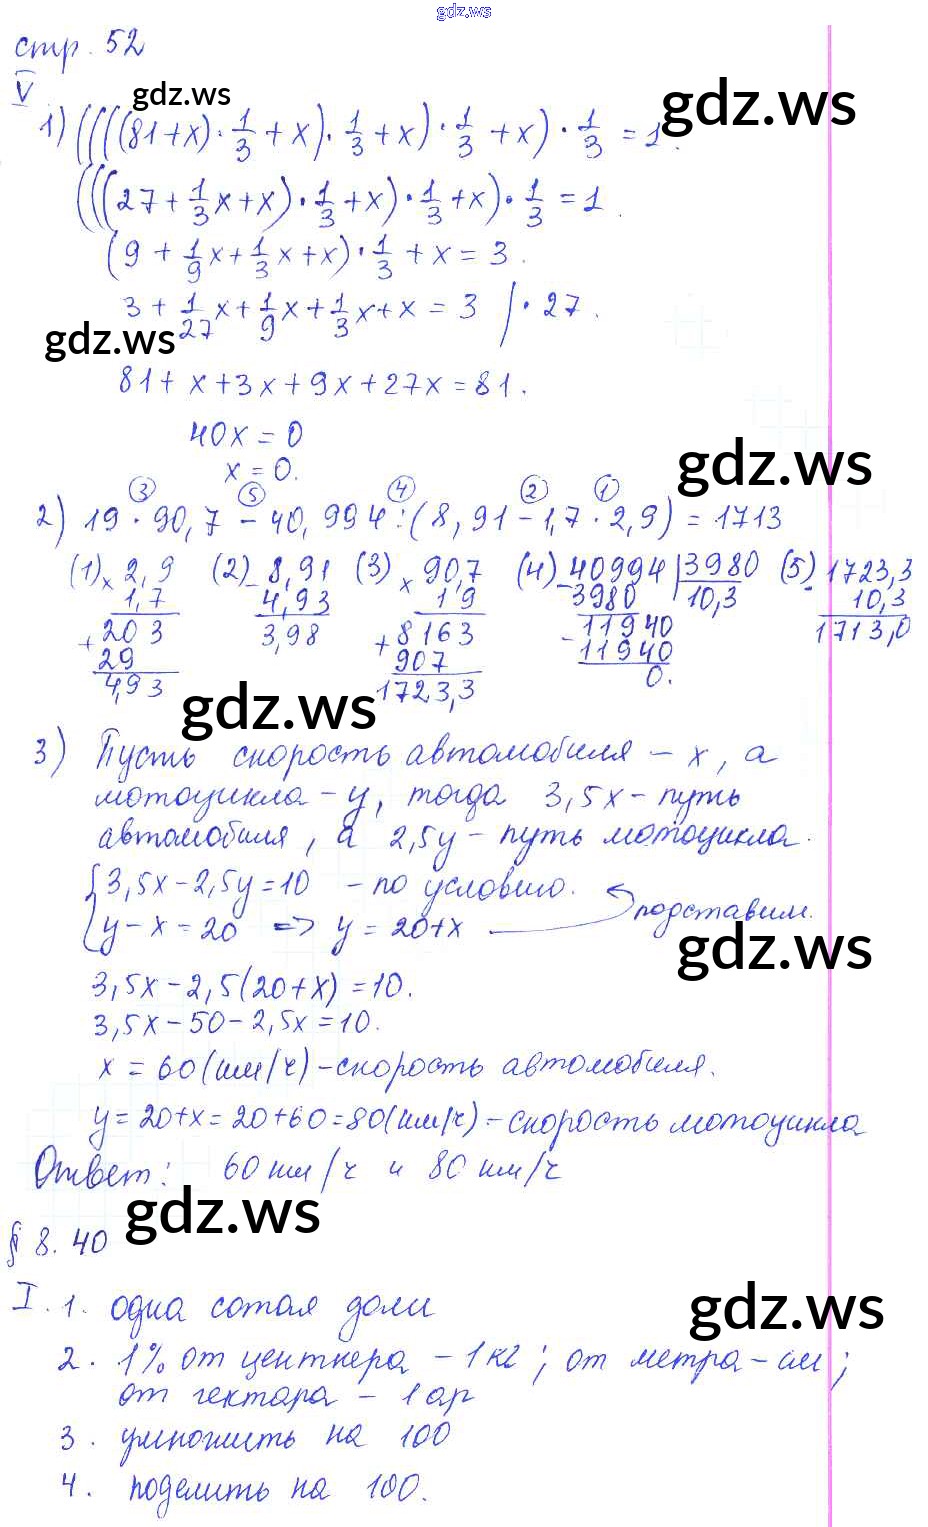 gdz.ws
стр. 52
V
gdz.ws
gdz.ws
1) ((((81+x)·1/3+x)·1/3+x)·1/3+x)·1/3=1.
(((27+1/3x+x)·1/3+x)·1/3+x)·1/3=1.
(9+1/9x+1/3x+x)·1/3+x=3.
3+1/27x+1/9x+1/3x+x=3 |·27.
gdz.ws
81+x+3x+9x+27x=81.
40x=0
x=0.
gdz.ws
③ ⑤ ④ ② ①
2) 19·90,7-40,994:(8,91-1,7·2,9)=1713
(1) × 2,9 (2) - 8,91 (3) × 90,7 (4) - 40994 | 3980 (5) - 1723,3
1,7 4,93 19 3980 10,3 10,3
+ 203 3,98 + 8163 - 11940 1713,0
29 907 11940
4,93 1723,3 0.
gdz.ws
3) Пусть скорость автомобиля - x, а
мотоцикла - y, тогда 3,5x - путь
автомобиля, а 2,5y - путь мотоцикла.
{3,5x-2,5y=10 - по условию.
y-x=20 => y=20+x подставим.
gdz.ws
3,5x-2,5(20+x)=10.
3,5x-50-2,5x=10.
x=60(км/ч)-скорость автомобиля.
y=20+x=20+60=80(км/ч)-скорость мотоцикла
Ответ: 60 км/ч и 80 км/ч
gdz.ws
§ 8.40
I. 1. одна сотая доли
gdz.ws
2. 1% от центнера - 1кг; от метра - см;
от гектара - 1 ар
3. умножить на 100
4. поделить на 100.